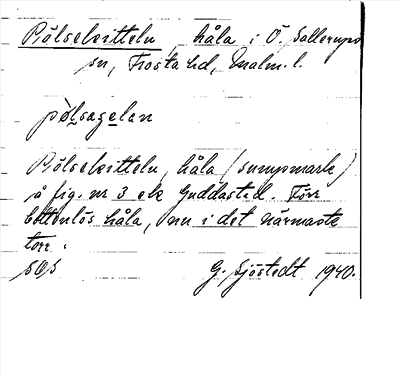 Pölsekitteln, håla i Ö. Sallerups
sn, Frosta hd, Malm. l.
pölsagelan
Pölsekitteln, håla (sumpmark)
å fig. nr 3 ek Guddastad. Förr
bottenlös håla, nu i det närmaste
torr.
SOS G. Sjöstedt 1940.